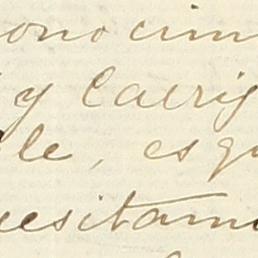 onocim
y Caerig
le, esqu
uesitam